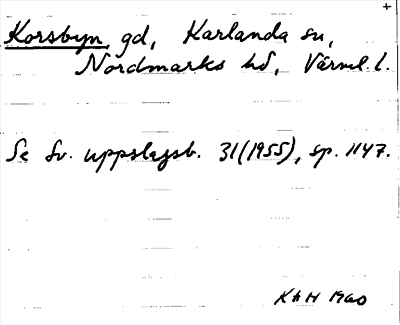 +
Korsbyn, gd, Karlanda sn,
Nordmarks hd, Värml. l.
Se Sv. uppslagsb. 31(1955), sp. 1147.